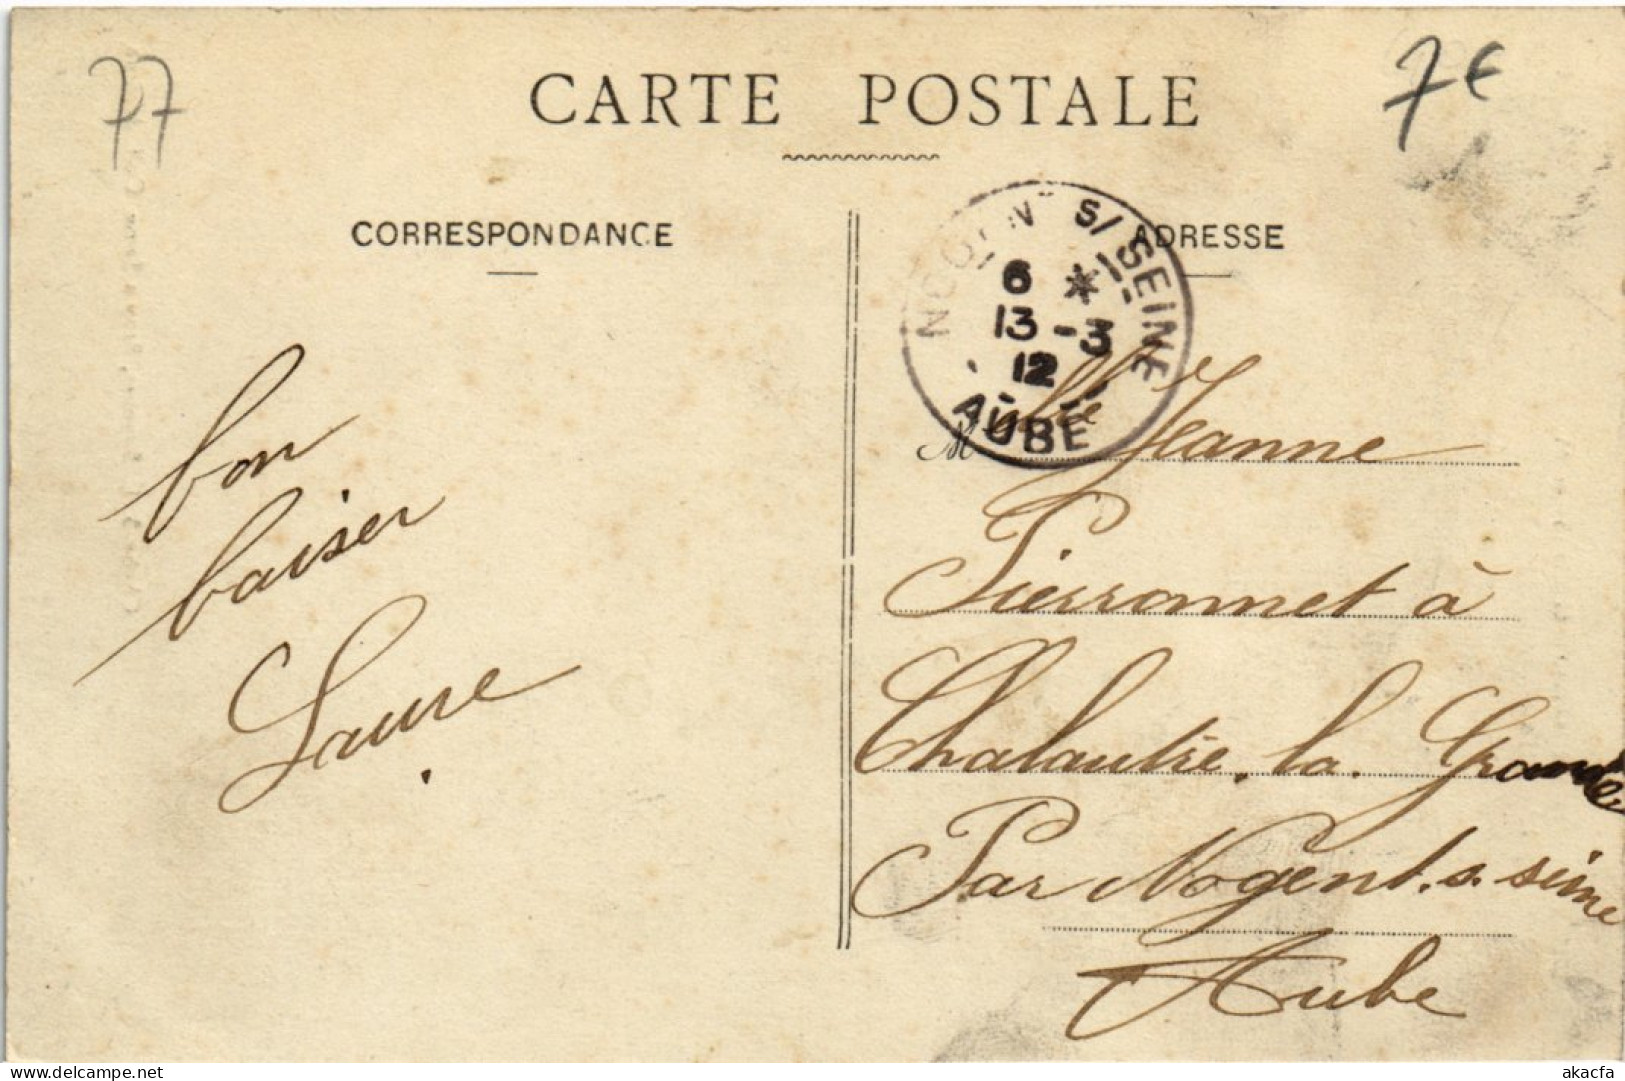 77
7€
CARTE POSTALE
CORRESPONDANCE
ADRESSE
NOGENT S/ SEINE
6 *
13 - 3
12
AUBE
bon
baiser
Laure
M Jeanne
Pierronnet à
Chalautre la Grande
Par Nogent. s. seine
Aube
delcampe.net
akacfa